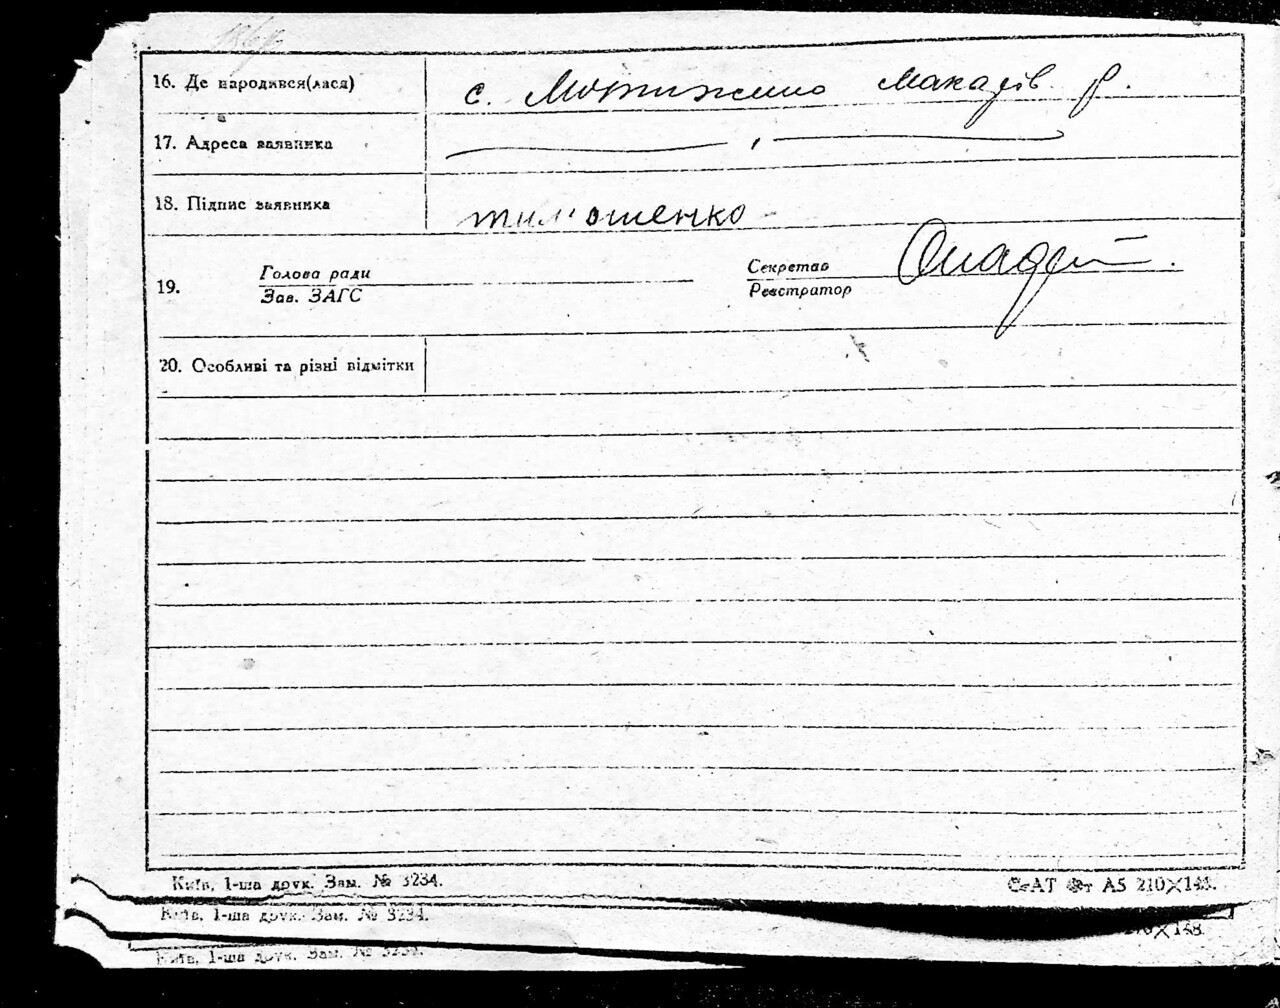 16. Де народився(лася) с. Мотижино Макарів р.
17. Адреса заявника
18. Підпис заявника Тимошенко
19. Голова ради Секретар
Зав. ЗАГС Реєстратор
20. Особливі та різні відмітки
Київ, 1-ша друк. Зам. № 3234. СтАТ Фт А5 210×148.
Київ, 1-ша друк. Зам. № 3234. ×148.
Київ, 1-ша друк. Зам. № 3234.